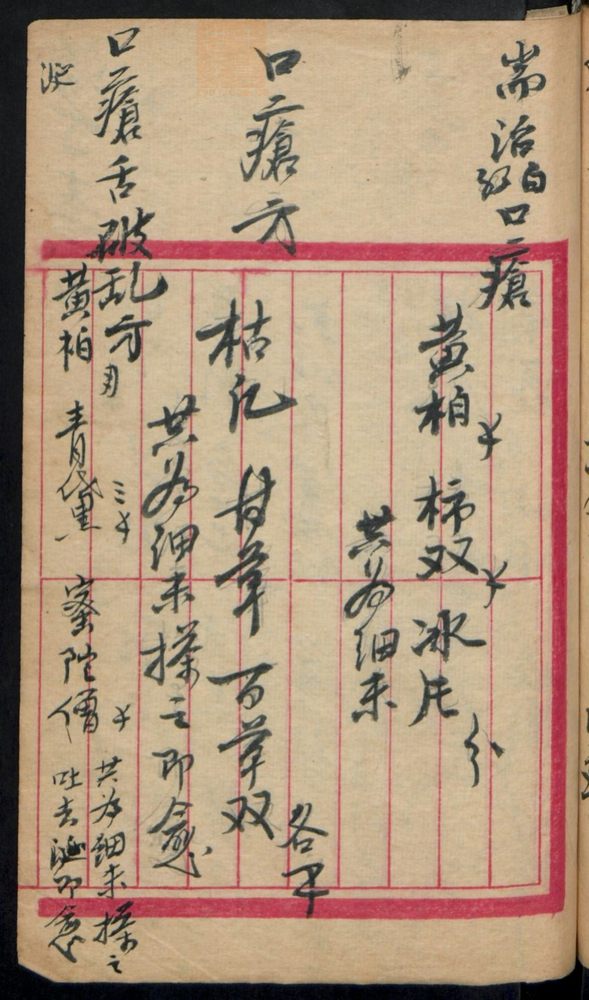 耑治白口瘡
紅
黃柏 柿双 冰片
共为细末
口瘡方
枯凡 甘草 百草双 各平
共为细末搽之即愈
口瘡舌破乱方
黃柏 青黛 三 蜜陀僧
共为细末搽之
吐去涎即愈
涎